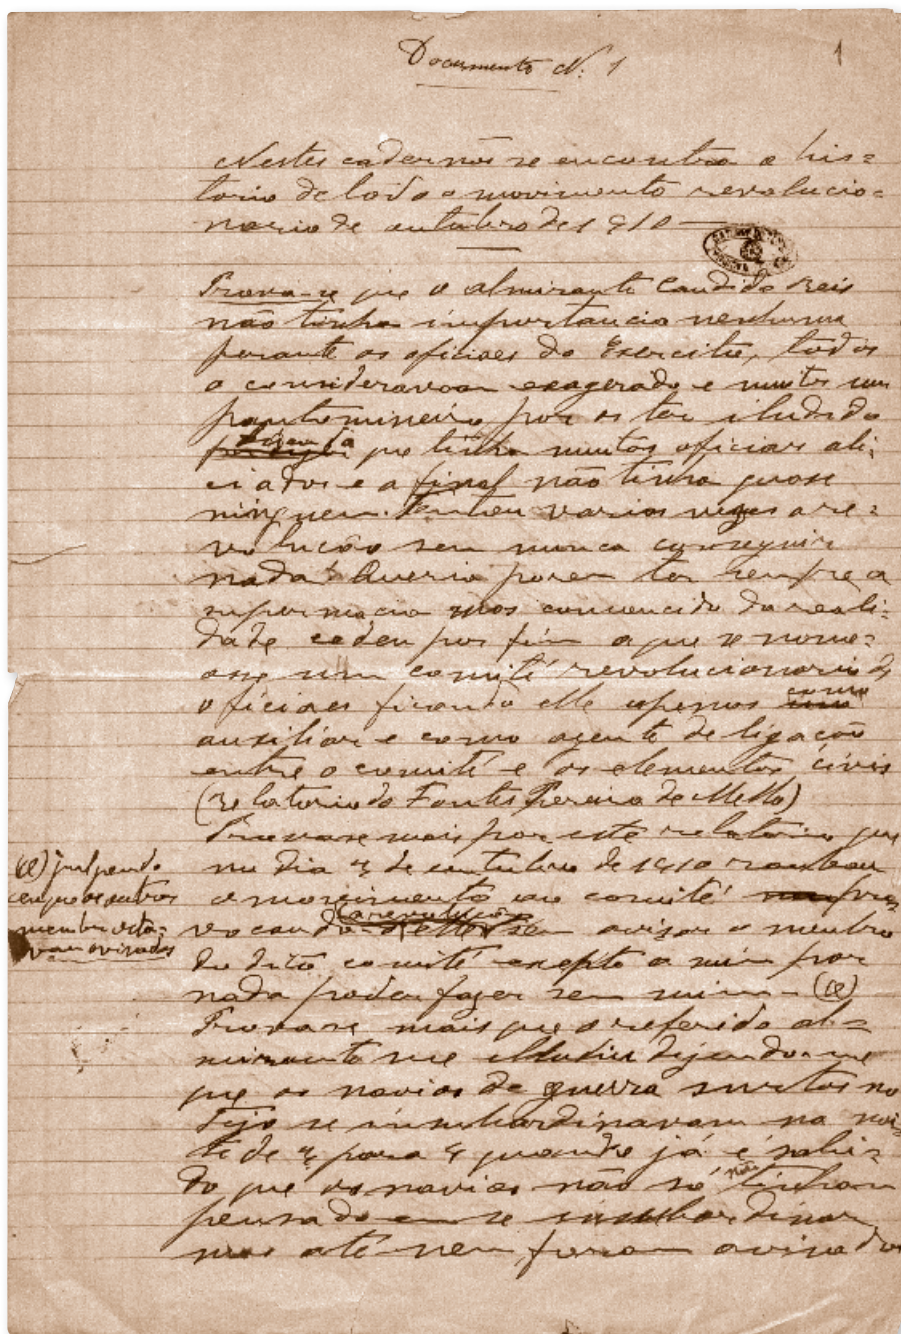 Documento N.º 1
1
Nestes cadernos se encontra a his=
toria de todo o movimento revolucio=
nario de outubro de 1910
Prova-se que o almirante Candido Reis
não tinha importancia nenhuma
perante os oficiaes do Exercito, todos
o consideravam exagerado e muitos um
pantomineiro por os ter iludido
que tinha muitos oficiaes ali=
ciados e a final não tinha quase
ninguem. Tentou varias vezes a re=
volução sem nunca conseguir
nada. Queria porem ter sempre a
supremacia mas convencido da reali=
dade cedeu por fim a que se nome=
asse um comité revolucionario de
oficiaes ficando elle apenas como
auxiliar e como agente de ligação
entre o comité e os elementos civis
(relatorio do Fontes Pereira de Mello)
Provase mais por este relatorio que
no dia 3 de outubro de 1910 roubou
o movimento ao comité pro=
vocando a revolução sem avisar o membro
do dito comité excepto a mim por
nada poder fazer sem mim - (a)
(a) julgando
eu que os outros
membros esta=
vam avisados
Prova-se mais que o referido al=
mirante me illudiu dizendo-me
que os navios de guerra surtos no
Tejo se insubordinavam na noi=
te de 3 para 4 quando já é sabi=
do que os navios não só não tinham
pensado em se insubordinar
mas até nem foram avisados